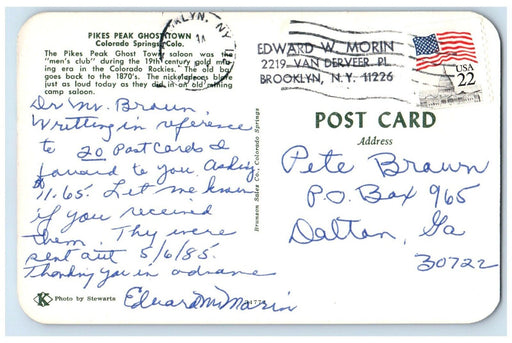 PIKES PEAK GHOST TOWN
Colorado Springs, Colo.
The Pikes Peak Ghost Town saloon was the
"men's club" during the 19th century gold min-
ing era in the Colorado Rockies. The old bar
goes back to the 1870's. The nickelodeons blare
just as loud today as they did in an old mining
camp saloon.
KLYN, NY
EDWARD W. MORIN
2219 VAN DERVEER PL
BROOKLYN, N.Y. 11226
USA
22
POST CARD
Address
Dr Mr. Braun,
Writting in reference
to 20 Post Cards I
foward to you. Asking
$11.65. Let me know
if you received
them. Thy were
sent out 5/6/85.
Thanking you in advane
Edward W Morin
Pete Brawn
P.O. Box 965
Dalton, Ga
30722
Brunson Sales Co., Colorado Springs
K Photo by Stewarts